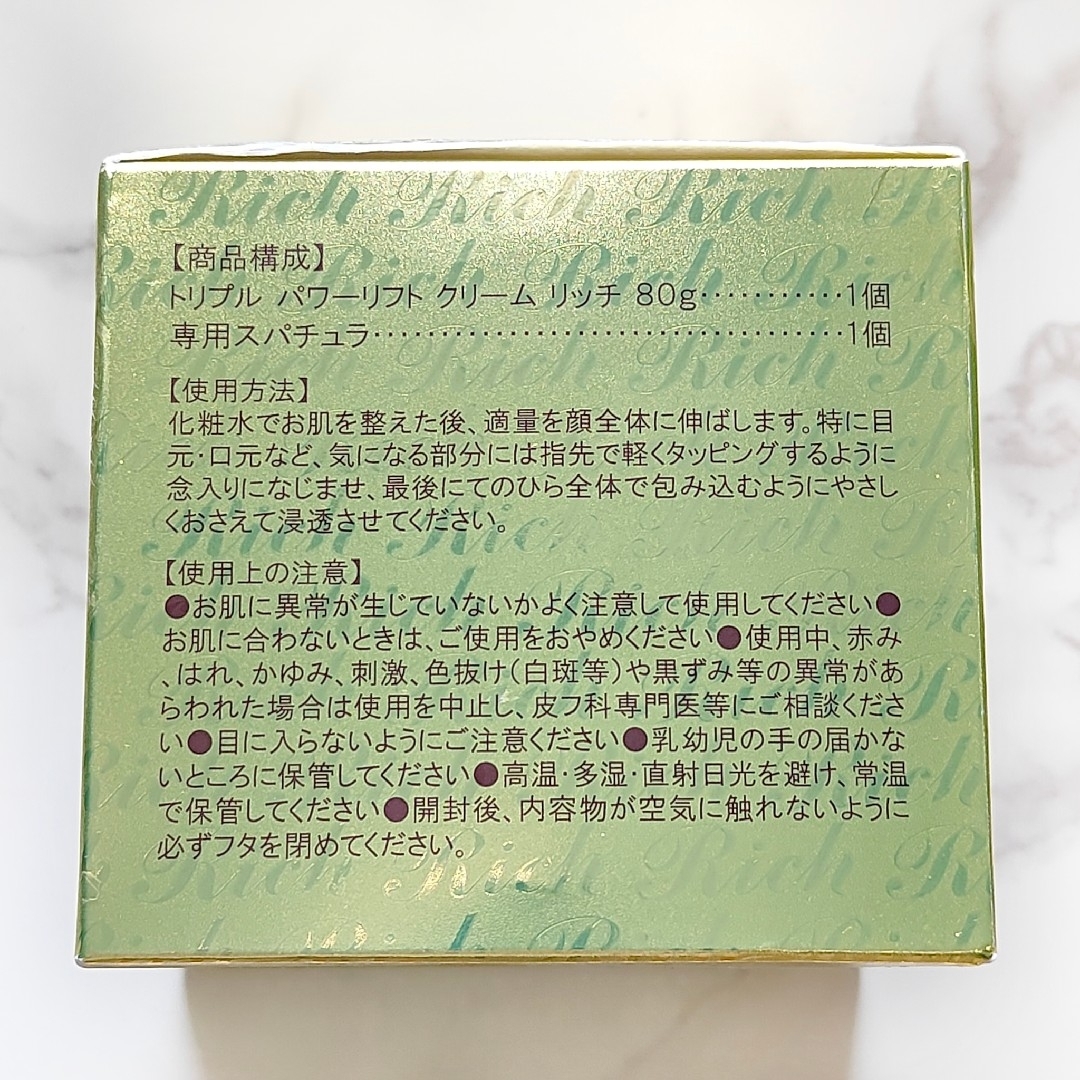 Rich Rich Rich
【商品構成】
トリプル パワーリフト クリーム リッチ 80g…………1個
専用スパチュラ………………………………1個
【使用方法】
化粧水でお肌を整えた後、適量を顔全体に伸ばします。特に目
元・口元など、気になる部分には指先で軽くタッピングするように
念入りになじませ、最後にてのひら全体で包み込むようにやさし
くおさえて浸透させてください。
【使用上の注意】
●お肌に異常が生じていないかよく注意して使用してください●
お肌に合わないときは、ご使用をおやめください●使用中、赤み
、はれ、かゆみ、刺激、色抜け(白斑等)や黒ずみ等の異常があ
らわれた場合は使用を中止し、皮フ科専門医等にご相談くださ
い●目に入らないようにご注意ください●乳幼児の手の届かな
いところに保管してください●高温・多湿・直射日光を避け、常温
で保管してください●開封後、内容物が空気に触れないように
必ずフタを閉めてください。